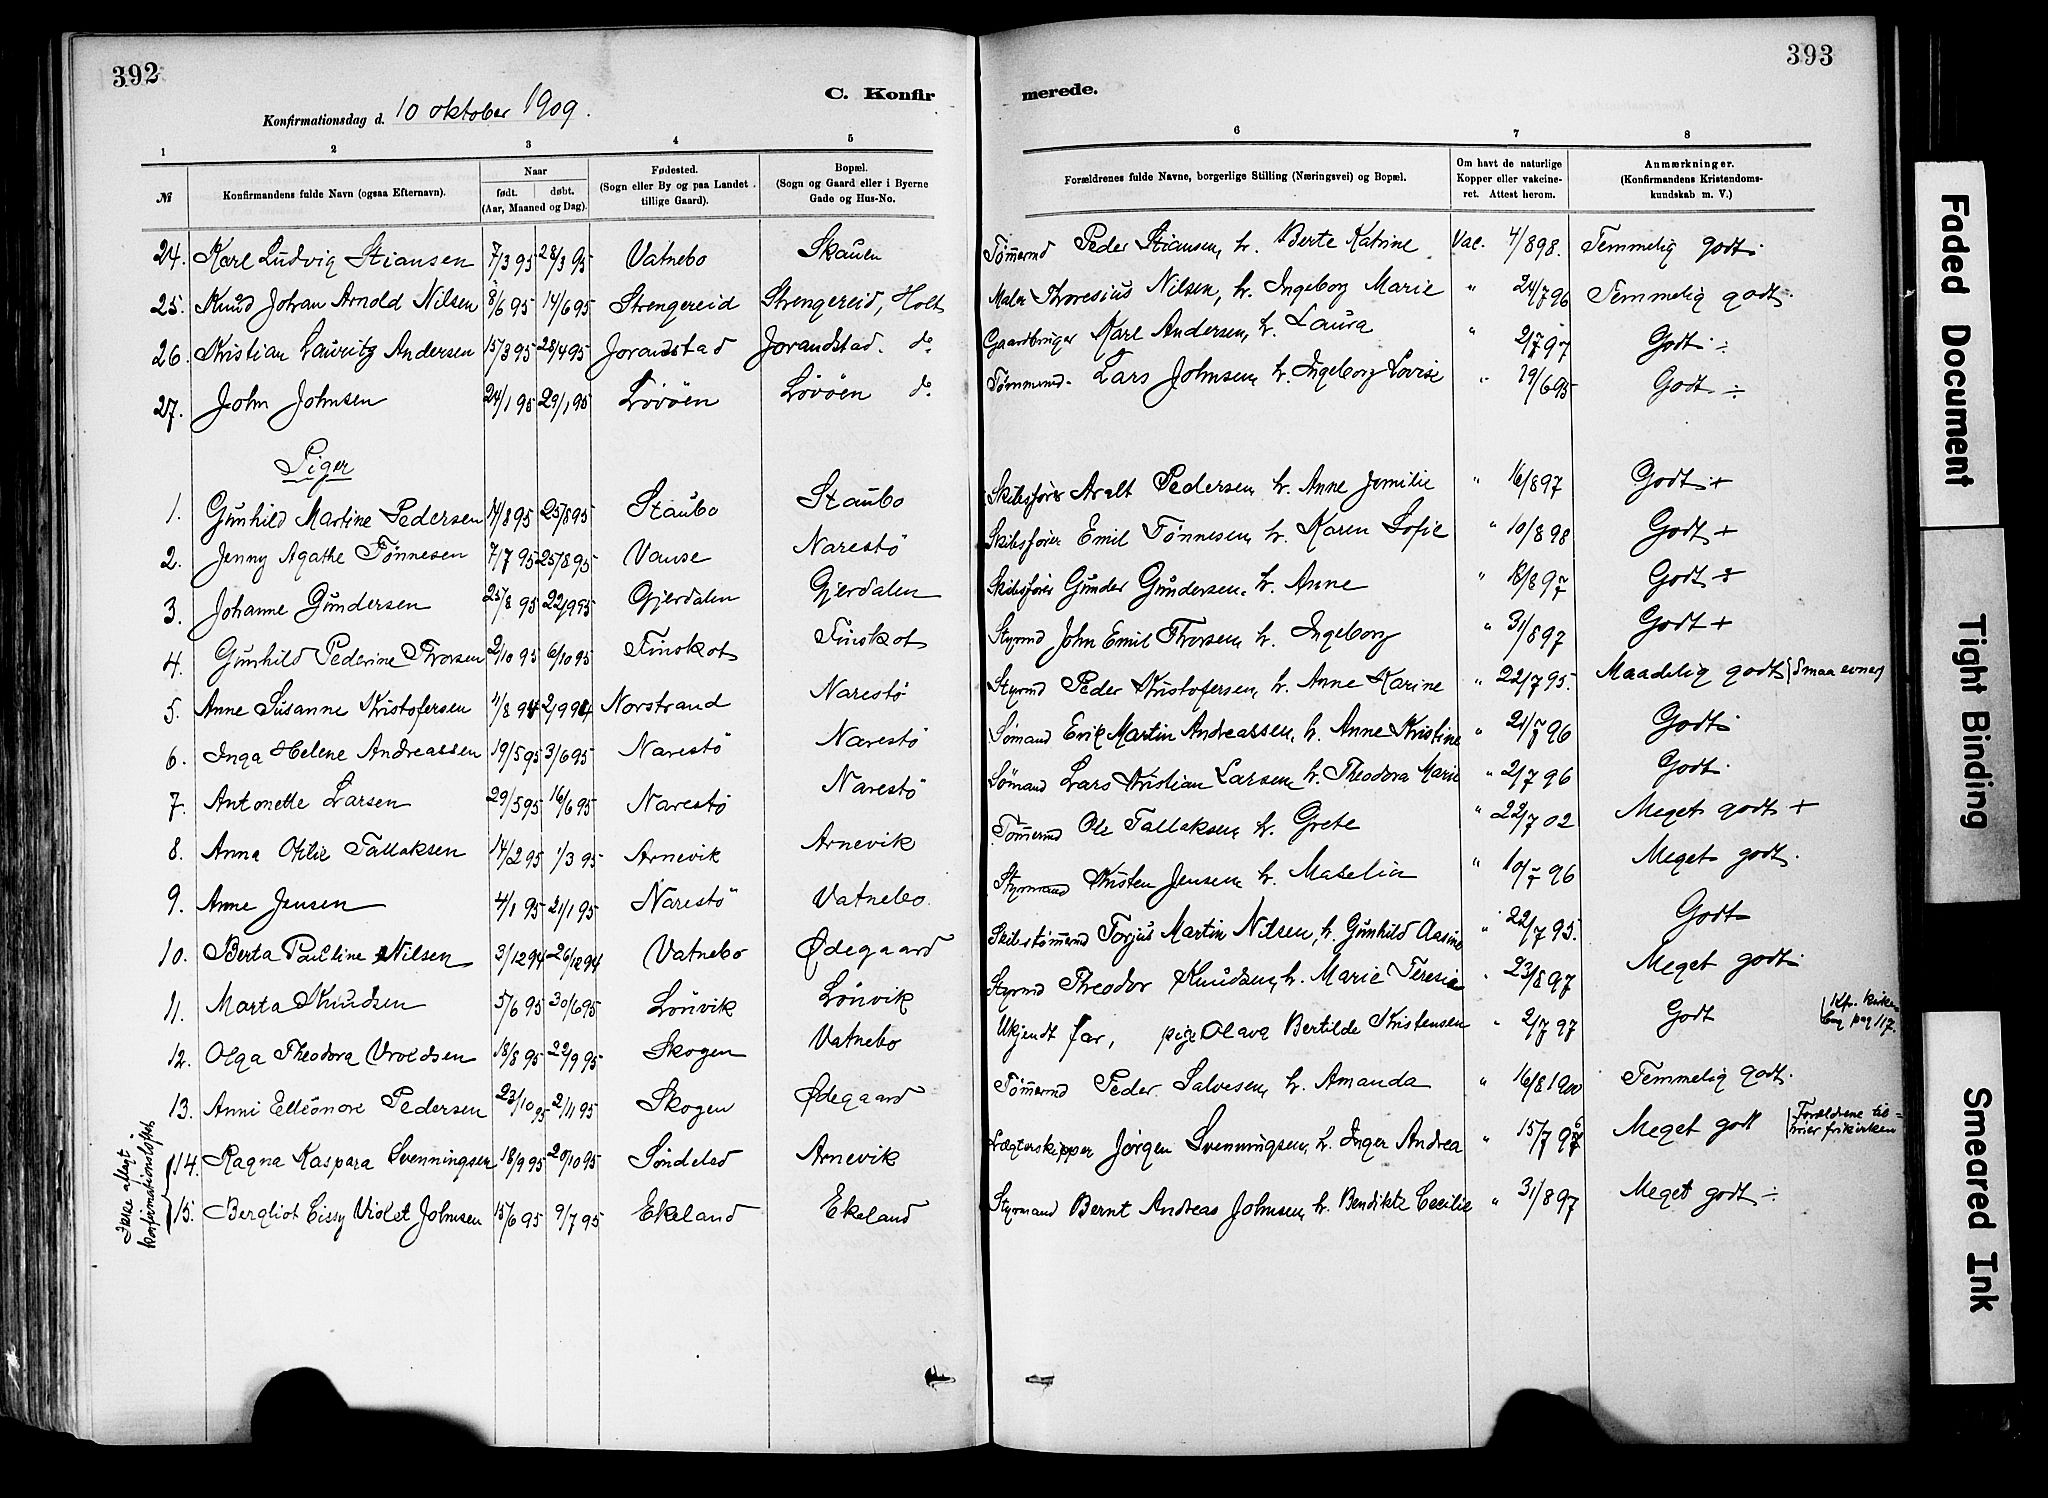 392
393
C. Konfir
merede.
Konfirmationsdag d. 10 oktober 1909.
1 2 3 4 5 6 7 8
№ Konfirmandens fulde Navn (ogsaa Efternavn). Naar født. døbt. (Aar, Maaned og Dag). Fødested. (Sogn eller By og paa Landet tillige Gaard). Bopæl. (Sogn og Gaard eller i Byerne Gade og Hus-No. Forældrenes fulde Navne, borgerlige Stilling (Næringsvei) og Bopæl. Om havt de naturlige Kopper eller vakcineret. Attest herom. Anmærkninger. (Konfirmandens Kristendomskundskab m. V.)
24. Karl Ludvig Stiansen 7/3 95 28/3 95 Vatnebo Skauen Tømermd Peder Stiansen, h. Berte Katrine Vac. 4/8 98. Temmelig godt.
25. Knud Johan Arnold Nilsen 8/6 95 14/6 95 Strengereid Strengereid, Holt Maler Thoresius Nilsen, h. Ingeborg Marie " 24/7 96 Temmelig godt.
26. Kristian Lauritz Andersen 15/3 95 28/4 95 Jorandstad Jorandstad. do Gaardbruger Karl Andersen, h. Laura " 2/7 97 Godt ÷
27. John Johnsen 24/1 95 29/1 95 Lövöen Lövöen do Tømmermd. Lars Johnsen, h. Ingeborg Lovise " 19/6 95 Godt ÷
Piger
1. Gunhild Martine Pedersen 14/8 95 25/8 95 Staubo Staubo Skibsfører Aralt Pedersen, h. Anne Jemilie " 16/8 97 Godt +
2. Jenny Agathe Tønnesen 7/7 95 25/8 95 Vanse Narestö Skibsfører Emil Tønnesen, h. Karen Sofie " 10/8 98 Godt +
3. Johanne Gundersen 25/8 95 22/9 95 Gjerdalen Gjerdalen Skibsfører Gunder Gundersen, h. Anne " 18/8 97 Godt +
4. Gunhild Pederine Thorsen 2/10 95 6/10 95 Finskot Finskot Styrmd John Emil Thorsen, h. Ingeborg " 31/8 97 Godt +
5. Anne Susanne Kristofersen 1/8 94 2/9 94 Norstrand Narestö Styrmd Peder Kristofersen, h. Anne Karine " 22/7 95. Maadelig godt (Smaa evner)
6. Inga Helene Andreassen 19/5 95 3/6 95 Narestö Narestö Sømand Erik Martin Andreassen, h. Anne Kristine " 21/7 96 Godt
7. Antonette Larsen 29/5 95 16/6 95 Narestö Narestö Sømand Lars Kristian Larsen, h. Theodora Marie " 2/7 96 Godt.
8. Anna Otilie Tallaksen 14/2 95 1/3 95 Arnevik Arnevik Tømermd Ole Tallaksen, h. Grete " 22/7 02 Meget godt +
9. Anne Jensen 4/1 95 21/1 95 Narestö Vatnebo Styrmand Kristen Jensen, h. Maselia " 10/7 96 Meget godt.
10. Berta Pauline Nilsen 3/12 94 26/12 94 Vatnebo Ødegaard Skibstømermd Torjus Martin Nilsen, h. Gunhild Aasine " 22/7 95. Godt
11. Marta Knudsen 5/6 95 30/6 95 Lönvik Lönvik Styrmd Theodor Knudsen, h. Marie Teresie " 23/8 97 Meget godt.
12. Olga Theodora Vroldsen 18/8 95 22/9 95 Skogen Vatnebo Ukjendt far, pige Olava Bertilde Kristensen " 2/7 97 Godt (Kfr. kirkebog pag 117.
13. Anni Elleonore Pedersen 23/10 95 2/11 95 Skogen Ødegaard Tømermd Peder Salvesen, h. Amanda " 16/8 1900 Temmelig godt.
14. Ragna Kaspara Svenningsen 18/9 95 20/10 95 Söndeled Arnevik Lægterskipper Jörgen Svenningsen, h. Inger Andrea " 15/7 97 Meget godt (Forældrene tilhører frikirken
15. Bergliot Cissy Violet Johnsen 15/6 95 9/7 95 Ekeland Ekeland Styrmand Bernt Andreas Johnsen, h. Bendikte Cecilie " 31/8 97 Meget godt ÷
aflagt konfirmationsløftet
Faded Document
Tight Binding
Smeared Ink